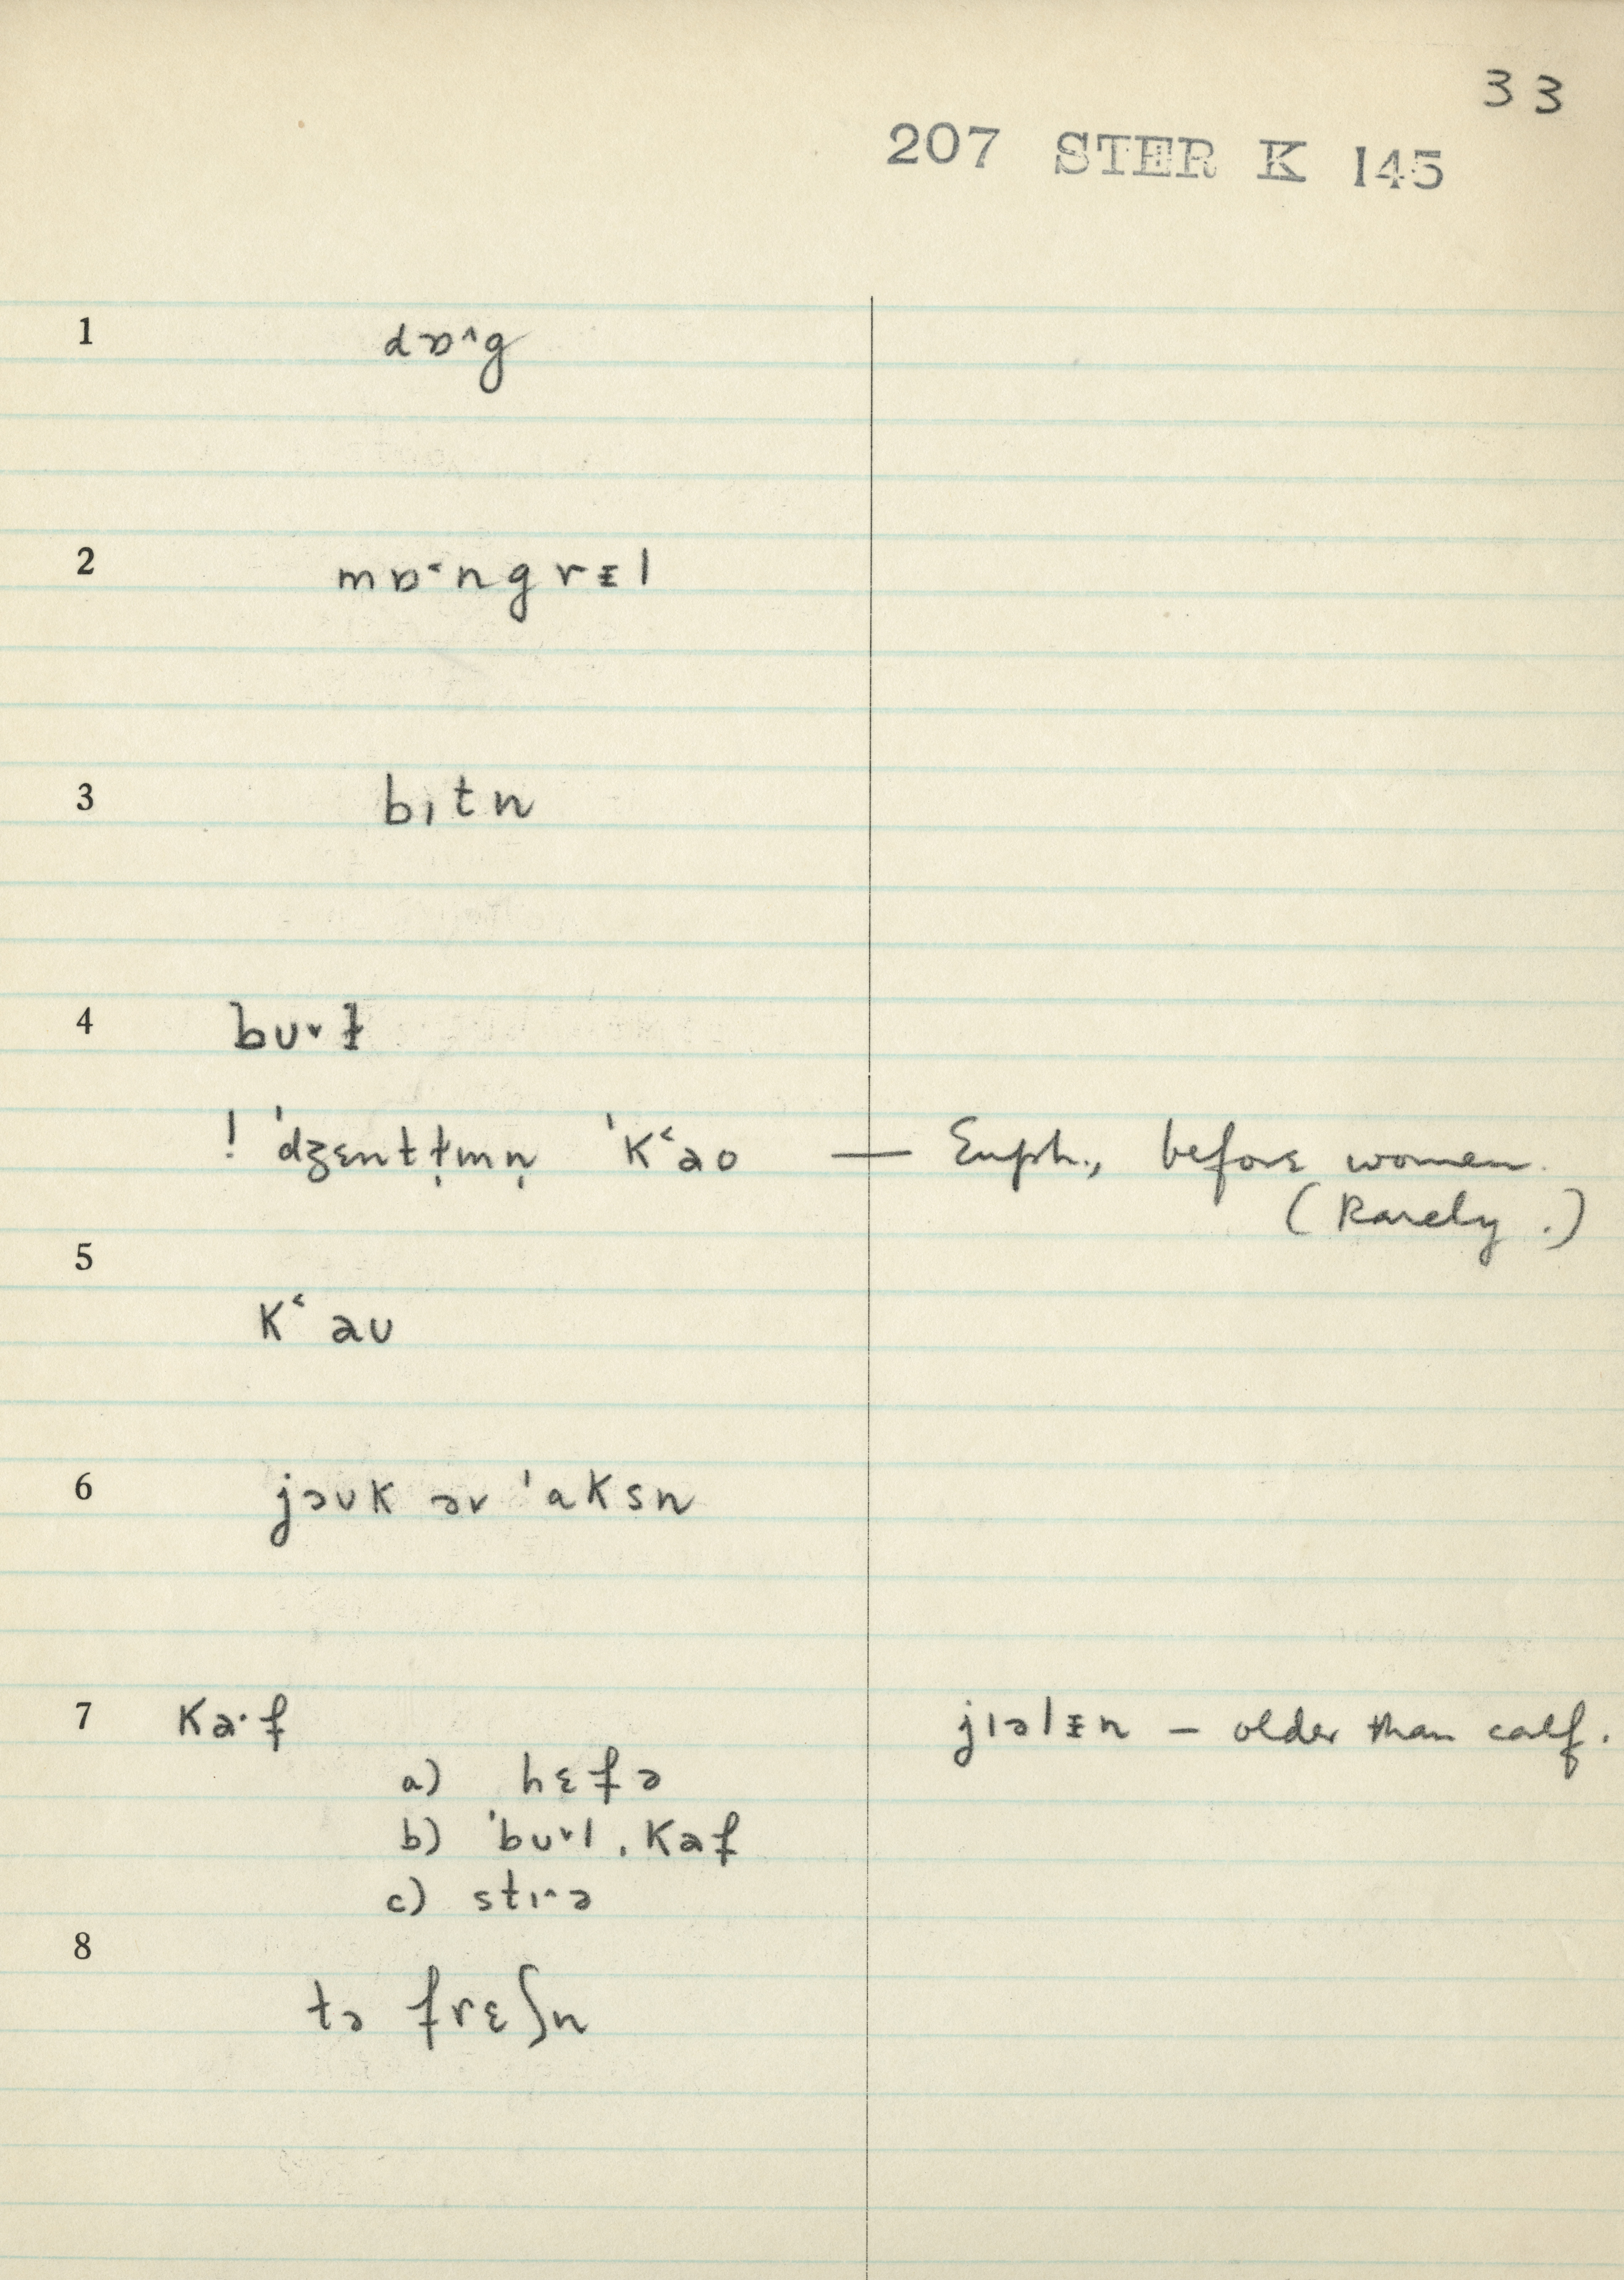 33
207 STER K 145
1 dɒ˄g
2 mɒ˂ngrᵻl
3 bɪtn
4 bʊ˅ɫ
! ˈdʒɛntɫ̩mn̩ ˈk˂ao — Euph., before women.
(Rarely.)
5
k˂ aʊ
6 jɔʊk əv ˈaksn
7 ka·f jɪəlᵻn — older than calf.
a) hɛfə
b) ˈbʊ˅l ˌkaf
c) stɪ˄ə
8
tə frɛʃn